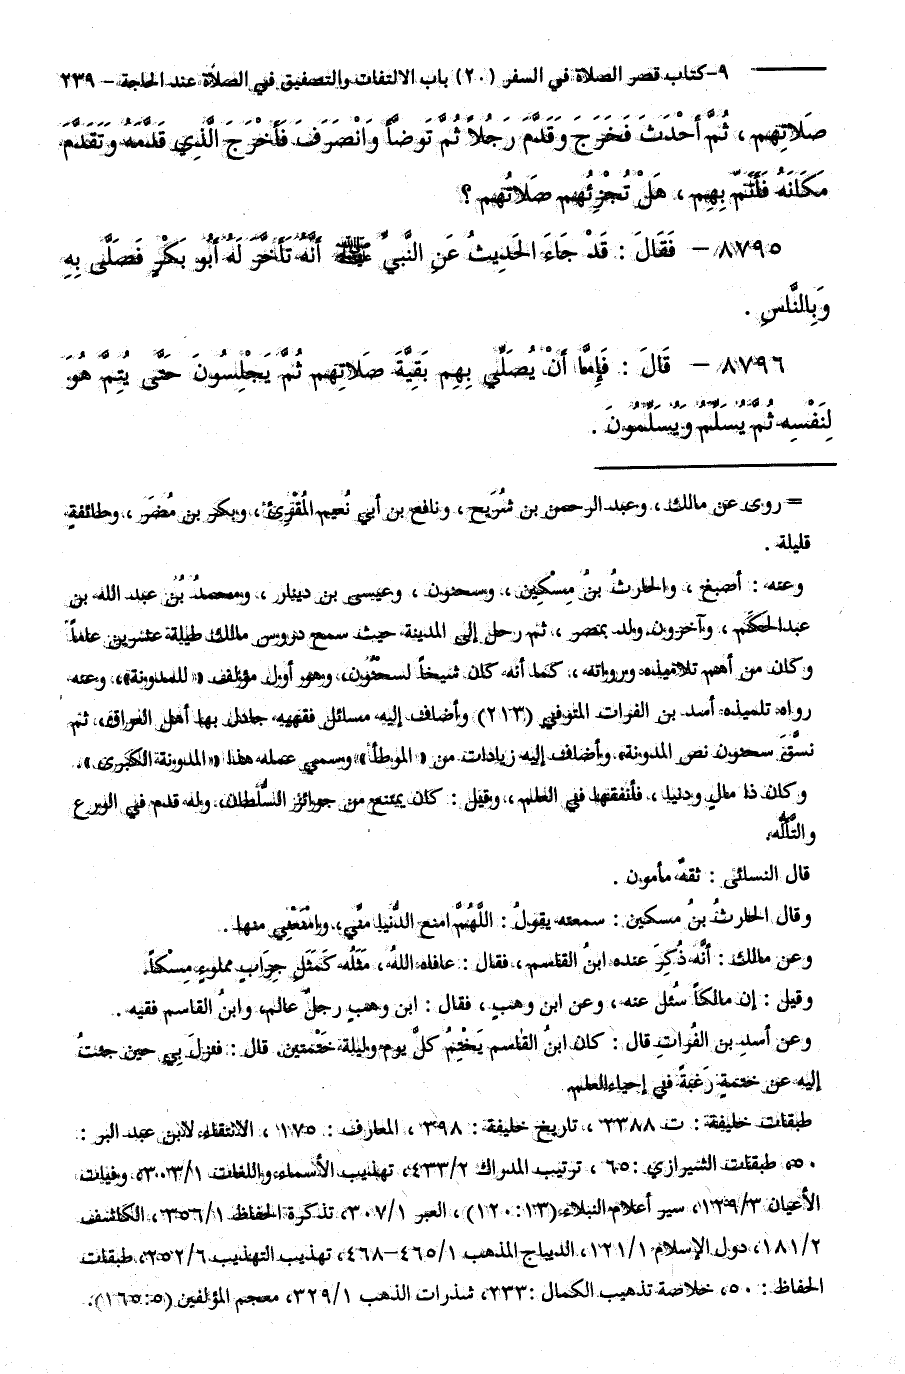 ٩-كتاب قصر الصلاة في السفر (٢٠) باب الالتفات والتصفيق في الصلاة عند الحاجة - ٢٣٩
صَلَاتِهِم ، ثُمَّ أَحْدَثَ فَخَرَجَ وَقَدَّمَ رَجُلاً ثُمَّ تَوضأَ وَانْصَرَفَ فَأَخْرَجَ الَّذِي قَدَّمَهُ وَتَقَدَّمَ
مَكَانَهُ فَأَتَمَّ بِهِم ، هَلْ تُجْزِئُهُم صَلَاتُهُم ؟
٨٧٩٥ - فَقَالَ : قَدْ جَاءَ الحَدِيثُ عَنِ النَّبيِّ ﷺ أَنَّهُ تَأَخَّرَ لَهُ أَبُو بَكْرٍ فَصَلَّى بِهِ
وَبِالنَّاسِ .
٨٧٩٦ - قَالَ : فَإِمَّا أَنْ يُصَلِّي بِهِم بَقِيَّةَ صَلَاتِهِم ثُمَّ يَجْلِسُونَ حَتَّى يُتِمَّ هُوَ
لِنَفْسِهِ ثُمَّ يُسَلِّمُ وَيُسَلِّمُونَ .
= روى عن مالك ، وعبد الرحمن بن شُرَيح ، ونافع بن أبي نُعيم المُقْرِئ ، وبكر بن مُضَر ، وطائفةٍ
قليلة .
وعنه : أصبغ ، والحارثُ بنُ مِسْكِين ، وسحنون ، وعيسى بن دينار ، ومحمدُ بْنُ عبد الله بن
عبدالحَكَم ، وآخرون. ولد بمصر ، ثم رحل إلى المدينة حيث سمع دروس مالك طيلة عشرين عاماً
وكان من أهم تلاميذه ورواته ، كما أنه كان شيخاً لسحنون، وهو أول مؤلف « للمدونة»، وعنه
رواه تلميذه أسد بن الفرات المتوفي (٢١٣) وأضاف إليه مسائل فقهيه جادل بها أهل العراق، ثم
نسَّقَ سحنون نص المدونة، وأضاف إليه زيادات من « الموطأ» وسمي عمله هذا «المدونة الكبرى».
وكان ذا مالٍ ودنيا ، فأنفقها في العلم ، وقيل : كان يمتنع من جوائز السُّلطان، وله قدم في الورع
والتَّألُّه.
قال النسائى : ثقةٌ مأمون .
وقال الحارثُ بنُ مسكين : سمعته يقولُ : اللَّهُمَّ امنع الدُّنيا منِّي، وامْنَعْنِي منها.
وعن مالك : أنَّه ذُكِرَ عنده ابنُ القاسم ، فقال : عافاه اللهُ ، مَثَلُه كَمَثَلِ جِرَابٍ مملوءٍ مِسْكاً.
وقيل : إن مالكاً سُئل عنه ، وعن ابن وهب ، فقال : ابن وهبٍ رجلٌ عالم، وابنُ القاسم فقيه .
وعن أسدِ بن الفُراتِ قال : كان ابنُ القَاسم يَخْتِمُ كلَّ يومٍ وليلة ختْمتين. قال : فنزلَ بي حين جئتُ
إليه عن ختمةٍ رَغبةً في إحياءالعلم.
طبقات خليفة : ت ٢٣٨٨ ، تاريخ خليفة : ٣٩٨ ، المعارف : ١٧٥ ، الانتقاء لابن عبد البر :
٥٠، طبقات الشيرازي :٦٥ ، ترتيب المدراك ٤٣٣/٢، تهذيب الأسماء واللغات ٣٠٣/١، وفيات
الأعيان ١٢٩/٣، سير أعلام النبلاء (١٢٠:١٣) ، العبر ٣٠٧/١، تذكرة الحفاظ ٣٥٦/١، الكاشف
١٨١/٢، دول الإسلام ١٢١/١، الديباج المذهب ٤٦٥/١-٤٦٨، تهذيب التهذيب ٢٥٢/٦، طبقات
الحفاظ : ٥٠، خلاصة تذهيب الكمال :٢٣٣، شذرات الذهب ٣٢٩/١، معجم المؤلفين (١٦٥:٥).